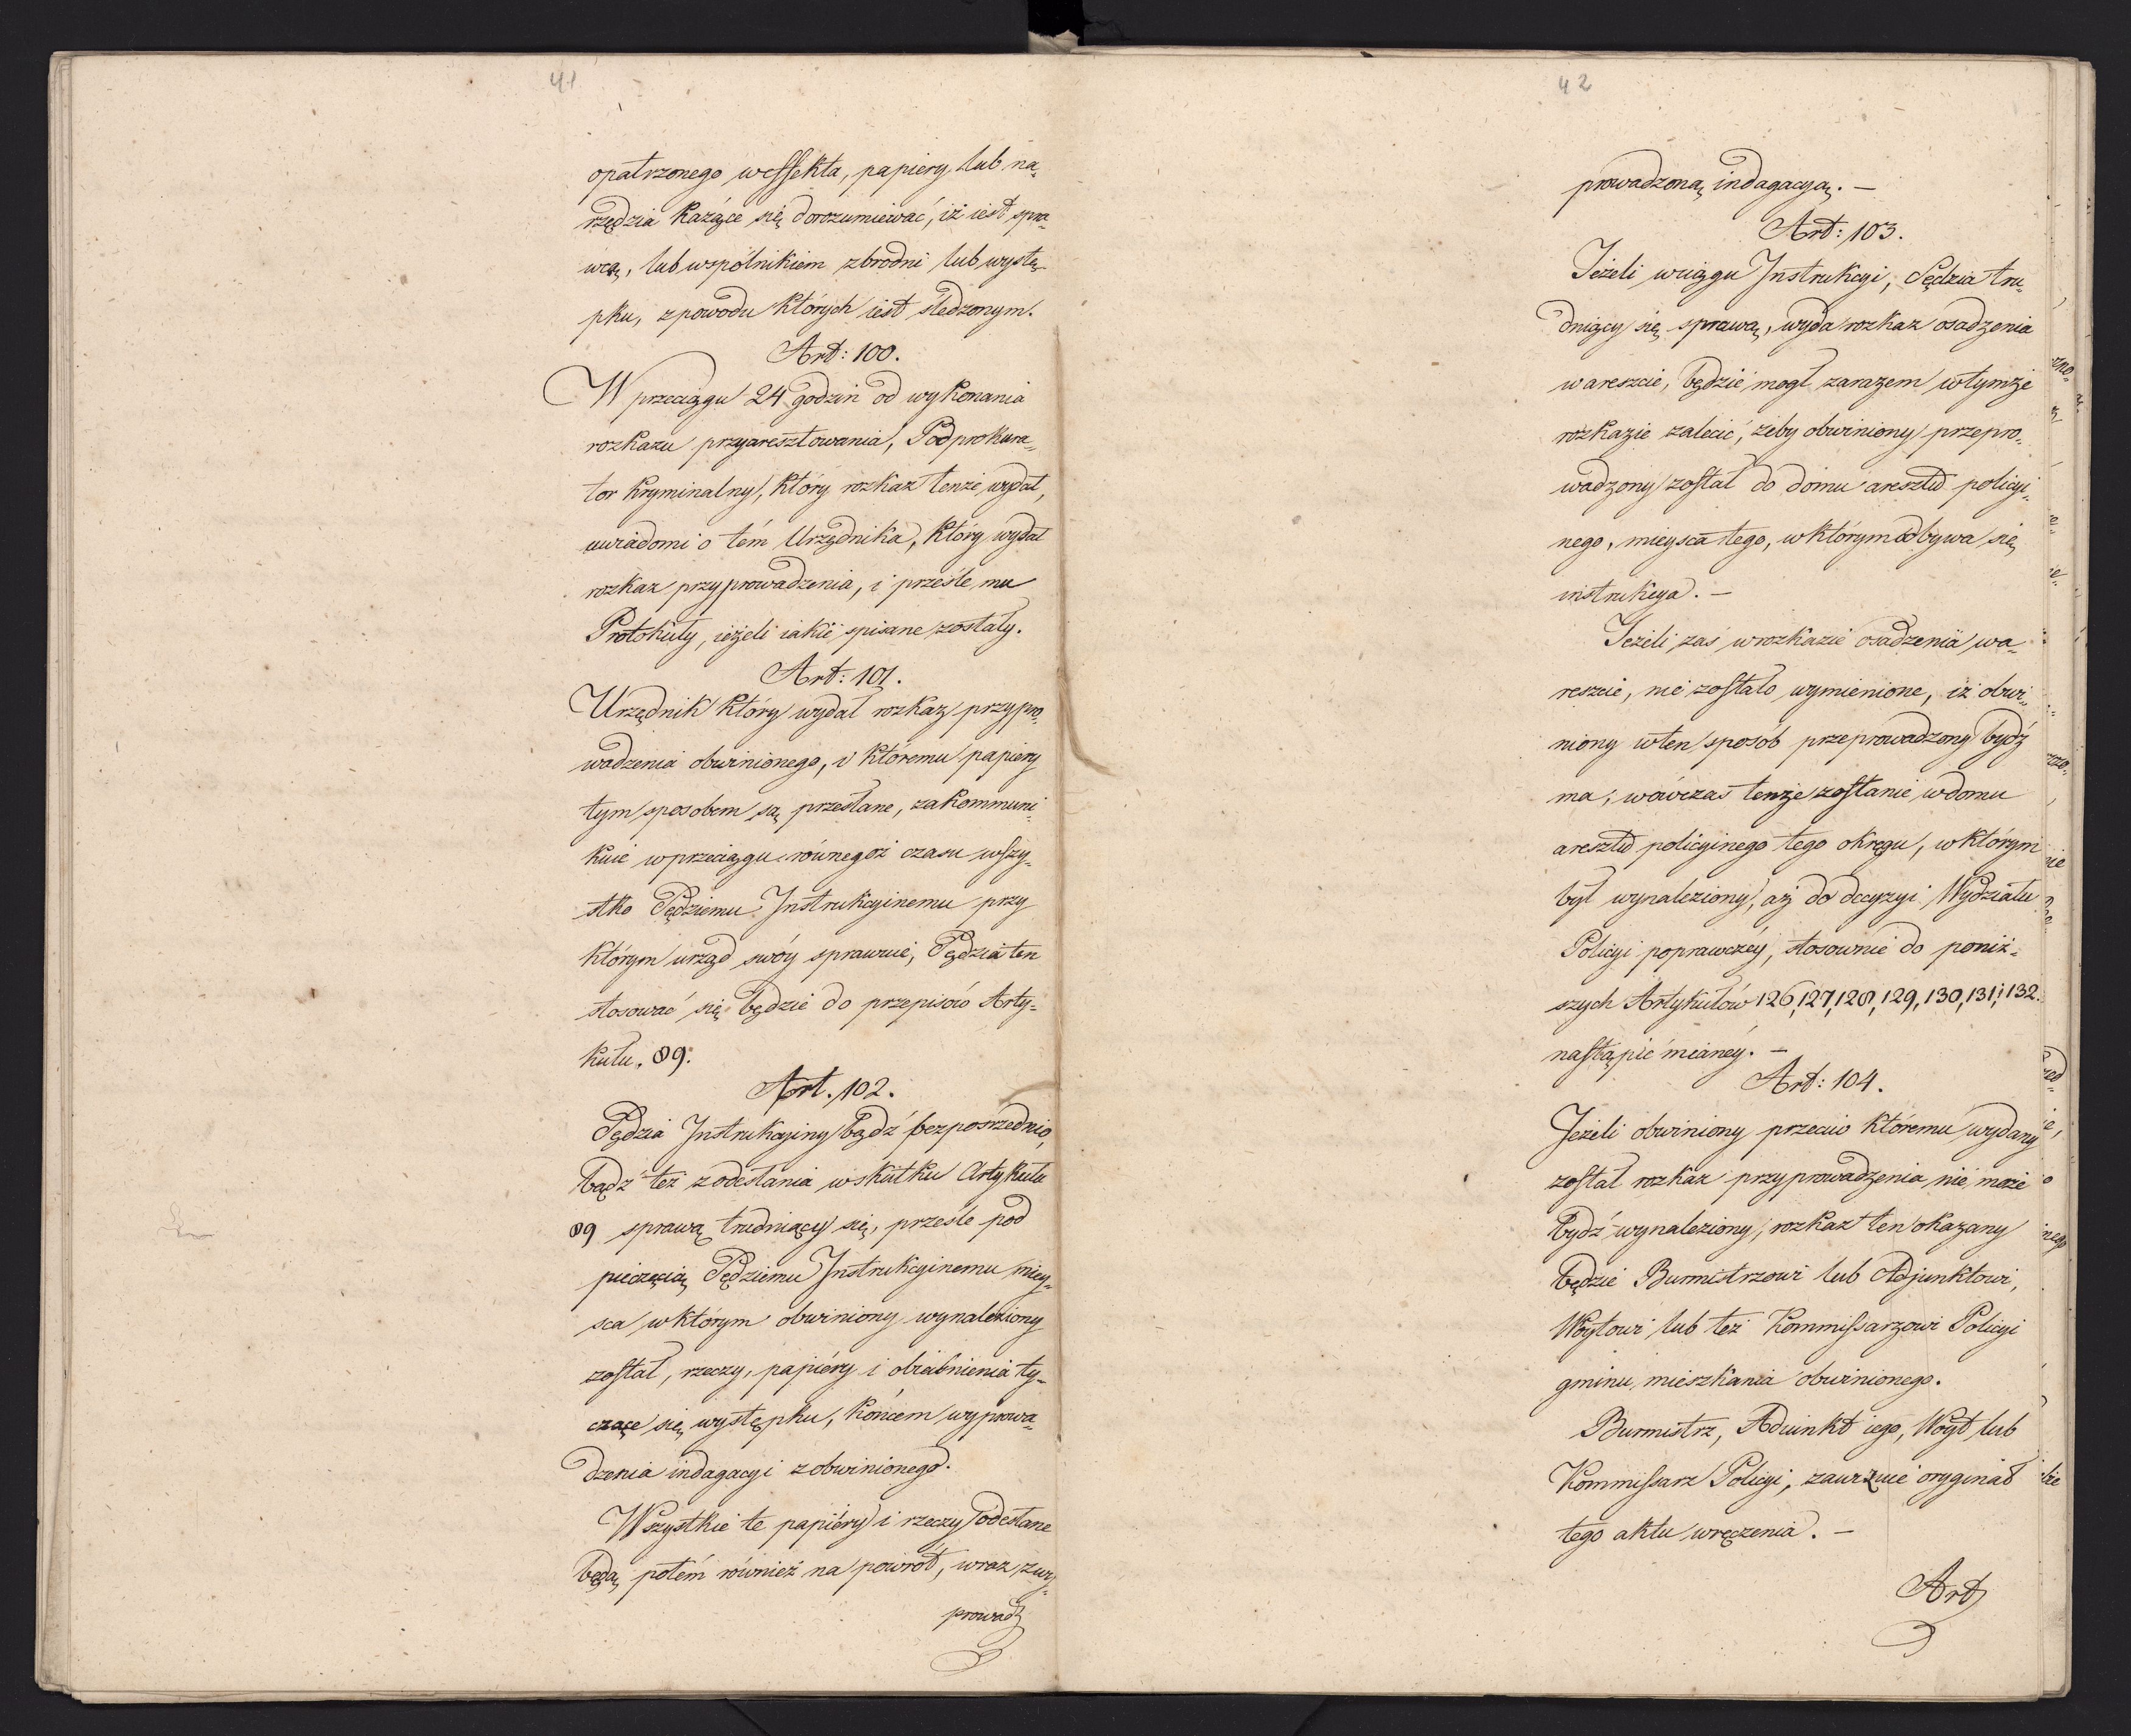 41
opatrzonego weffekta, papiery, lub na„
rzędzia każące się dorozumiewać, iż iest spra„
wcą, lub wspólnikiem zbrodni lub wystę„
pku, z powodu których iest śledzonym.
Art: 100.
W przeciągu 24 godzin od wykonania
rozkazu przyaresztowania, Podprokura„
tor Kryminalny, który rozkaz tenże wydał,
uwiadomi o tém Urzędnika, który wydał
rozkaz przyprowadzenia, i prześle mu
Protokuły, ieżeli iakie spisane zostały.
Art: 101.
Urzędnik który wydał rozkaz przypro„
wadzenia obwinionego, i któremu papiery
tym sposobem są przesłane, zakommuni„
kuie w przeciągu równegoż czasu wszy„
stko Sędziemu Instrukcyinemu przy
którym urząd swóy sprawuie, Sędzia ten
stosować się będzie do przepisów Arty„
kułu. 89.
Art. 102.
Sędzia Instrukcyiny bądź bezpośrednio,
bądź też z odesłania w skutku Artykułu
89 sprawą trudniący się, prześle pod
pieczęcią Sędziemu Instrukcyinemu miey„
sca w którym obwiniony wynaleziony
został, rzeczy, papiéry i obiaśnienia ty„
czące się występku, końcem wyprowa„
dzenia indagacyi z obwinionego.
Wszystkie te papiéry i rzeczy odesłane
będą potém również na powrót, wraz z wy„
prowadz
42
prowadzoną indagacyą. —
Art: 103.
Ieżeli w ciągu Instrukcyi, Sędzia tru„
dniący się sprawą, wyda rozkaz osadzenia
w areszcie, będzie mogł zarazem w tymże
rozkazie zalecić, żeby obwiniony przepro„
wadzony został do domu aresztu policyi„
nego, mieysca tego, w którym odbywa się
instrukcya. —
Ieżeli zaś w rozkazie osadzenia w a„
reszcie, nie zostało wymienione, iż obwi„
niony w ten sposób przeprowadzony bydź
ma, wówczas tenże zostanie w domu
aresztu policyinego tego okręgu, w którym
był wynaleziony, aż do decyzyi Wydziału
Policyi poprawczéy, stosownie do poniż„
szych Artykułów 126, 127, 128, 129, 130, 131, i 132.
nastąpić mianéy. —
Art: 104.
Jeżeli obwiniony przeciw któremu wydany
został rozkaz przyprowadzenia nie może
bydź wynaleziony, rozkaz ten okazany
będzie Burmistrzowi lub Adjunktowi,
Woytowi lub też Kommissarzowi Policyi
gminu mieszkania obwinionego.
Burmistrz, Adiunkt iego, Woyt lub
Kommissarz Policyi, zawizuie oryginał
tego aktu wręczenia. —
Art